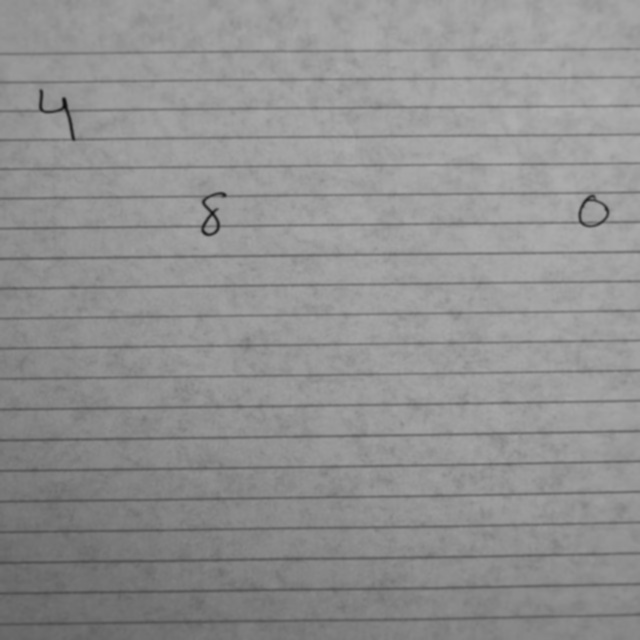 4
8 0